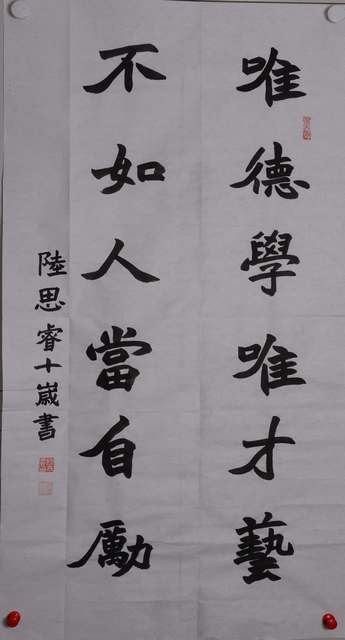 唯德學唯才藝
不如人當自勵
陸思睿十嵗書